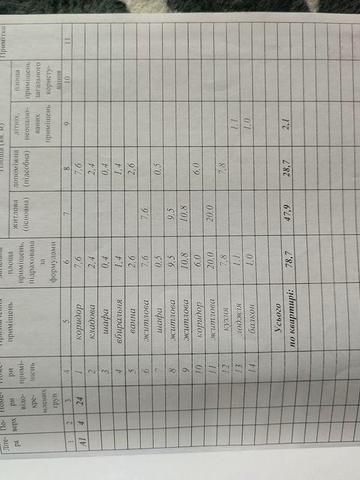 Літе-
ра
По-
верх
Номе-
ри
відо-
кре-
мрених
груп
ри
примі-
щень
приміщень
площа
приміщень,
підрахована
за
формулами
Площа (кв. м)
житлова
(основна)
допоміжна
(підсобна)
літніх,
неопалю-
ваних
приміщень
площа
приміщень
загального
користу-
вання
Примітки
1 2 3 4 5 6 7 8 9 10 11
А1 4 24 1 коридор 7,6 7,6
2 кладова 2,4 2,4
3 шафа 0,4 0,4
4 вбиральня 1,4 1,4
5 ванна 2,6 2,6
6 житлова 7,6 7,6
7 шафа 0,5 0,5
8 житлова 9,5 9,5
9 житлова 10,8 10,8
10 коридор 6,0 6,0
11 житлова 20,0 20,0
12 кухня 7,8 7,8
13 лоджія 1,1 1,1
14 балкон 1,0 1,0
Усього
по квартирі: 78,7 47,9 28,7 2,1